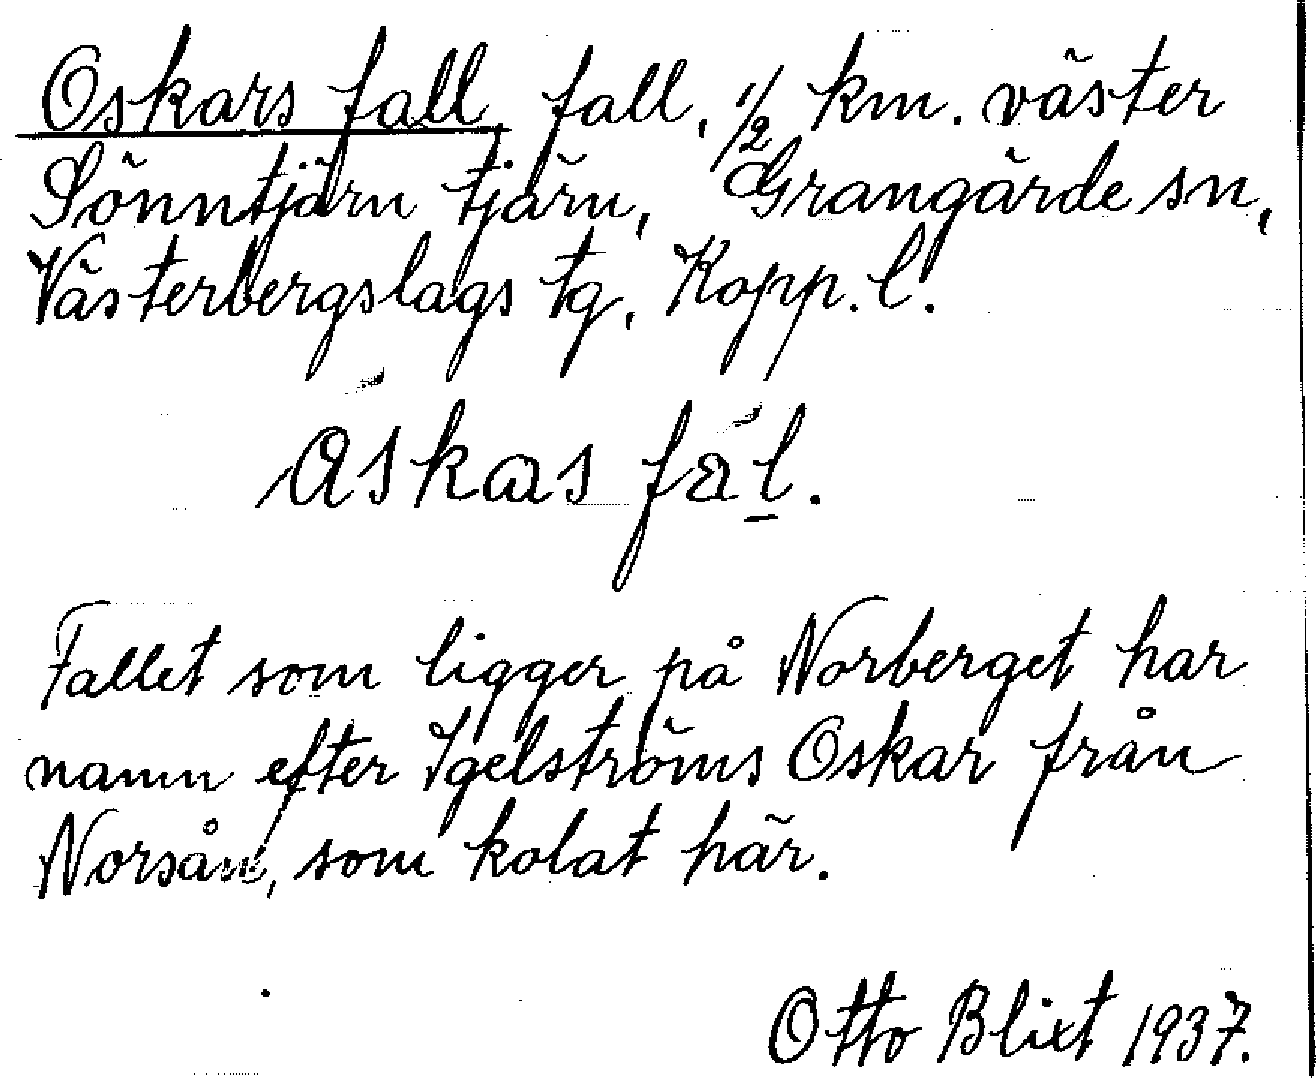 Oskars fall, fall, 1/2 km. väster
Sönntjärn tjärn, Grangärde sn,
Västerbergslags tg, Kopp. l.
åskas fal.
Fallet som ligger på Norberget har
namn efter Igelströms Oskar från
Norsån, som kolat här.
Otto Blixt 1937.